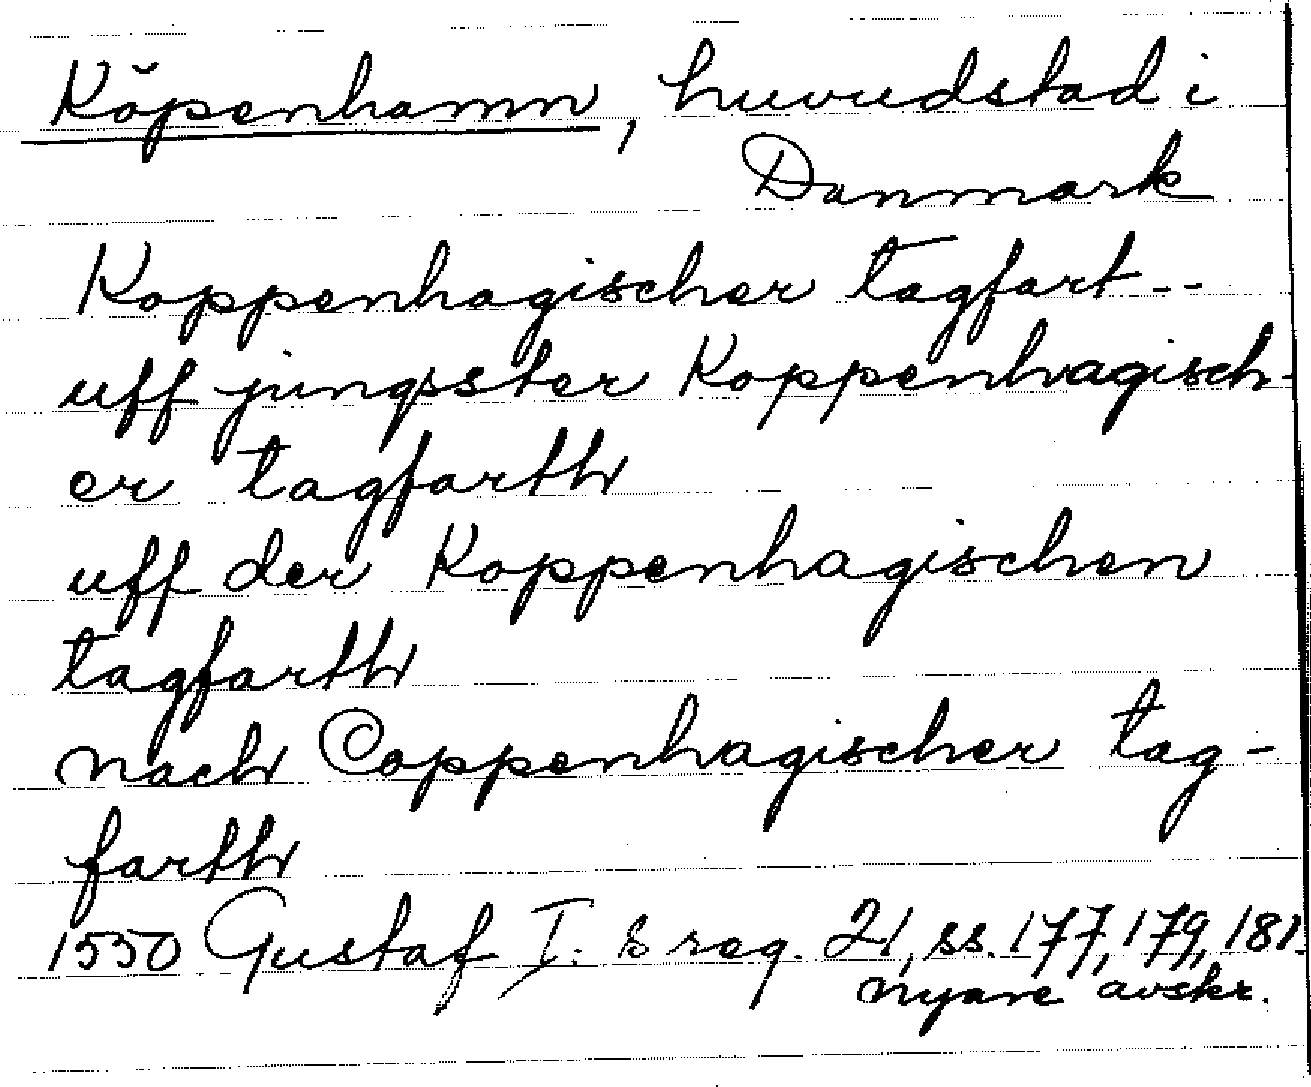 Köpenhamn, huvudstad i
Danmark
Koppenhagischer tagfart--
uff jungsster Koppenhagisch-
er tagfarth
uff der Koppenhagischen
tagfarth
nach Coppenhagischer tag-
farth
1550 Gustaf I:s reg. 21, ss. 177, 179, 181.
nyare avskr.